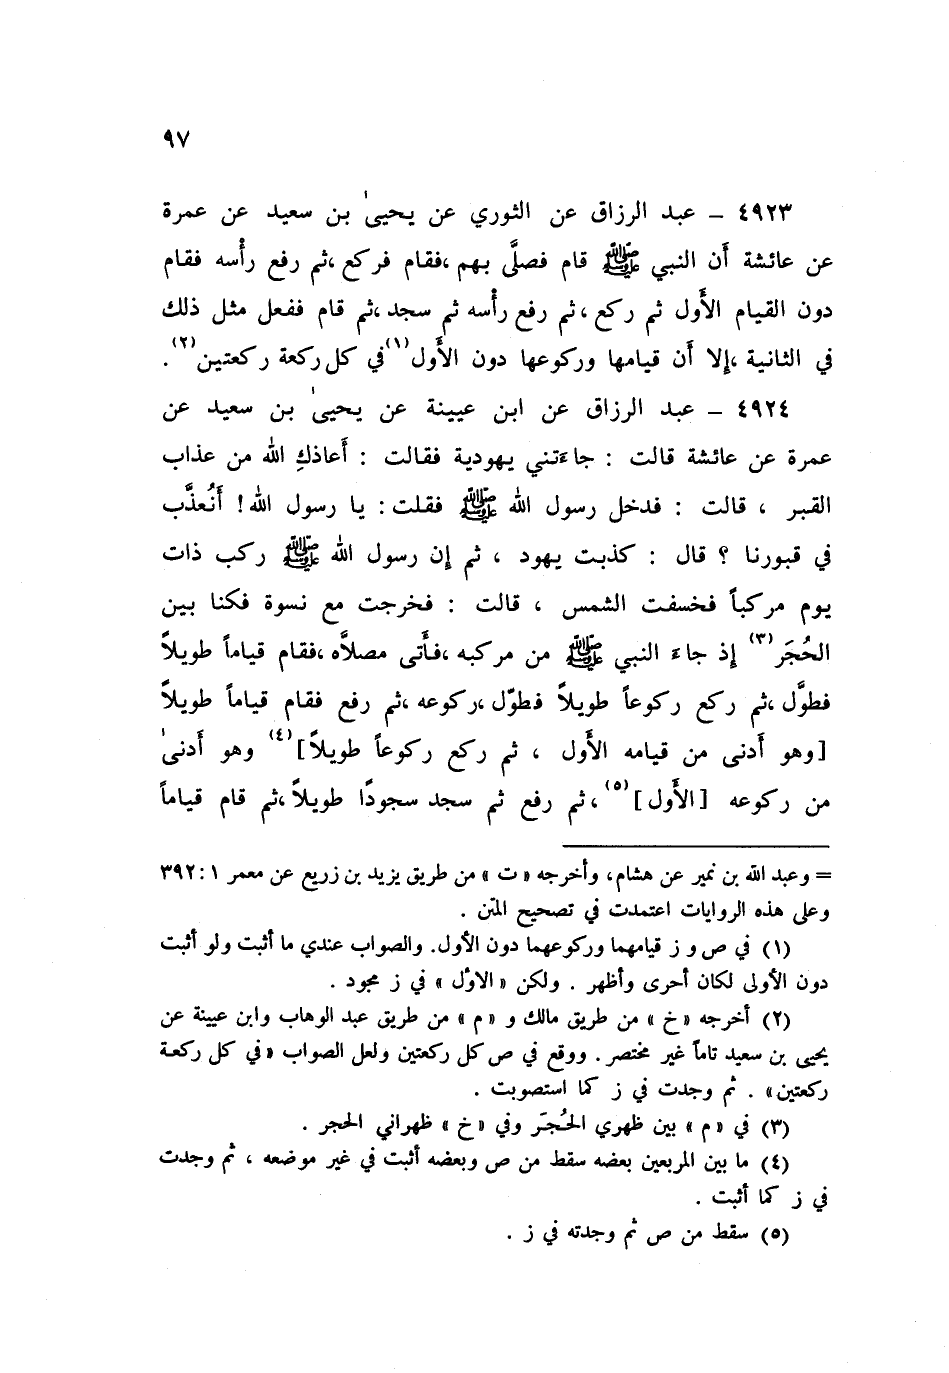 ٩٧
٤٩٢٣ ـ عبد الرزاق عن الثوري عن يحيىٰ بن سعيد عن عمرة
عن عائشة أَن النبي ﷺ قام فصلَّى بهم ،فقام فركع ،ثم رفع رأْسه فقام
دون القيام الأَول ثم ركع ، ثم رفع رأْسه ثم سجد ،ثم قام ففعل مثل ذلك
في الثانية ،إلا أَن قيامها وركوعها دون الأَول(١) في كل ركعة ركعتين(٢) .
٤٩٢٤ ـ عبد الرزاق عن ابن عيينة عن يحيىٰ بن سعيد عن
عمرة عن عائشة قالت : جاءَتني يهودية فقالت : أَعاذكِ الله من عذاب
القبر ، قالت : فدخل رسول الله ﷺ فقلت : يا رسول الله! أَنُعذَّب
في قبورنا ؟ قال : كذبت يهود ، ثم إن رسول الله ﷺ ركب ذات
يوم مركباً فخسفت الشمس ، قالت : فخرجت مع نسوة فكنا بين
الحُجَر(٣) إذ جاءَ النبي ﷺ من مركبه ،فأَتى مصلاَّه ،فقام قياماً طويلاً
فطوَّل ،ثم ركع ركوعاً طويلاً فطوّل ،ركوعه ،ثم رفع فقام قياماً طويلاً
[وهو أَدنى من قيامه الأَول ، ثم ركع ركوعاً طويلاً](٤) وهو أَدنىٰ
من ركوعه [الأَول](٥) ،ثم رفع ثم سجد سجودًا طويلاً ،ثم قام قياماً
= وعبد الله بن نمير عن هشام، وأخرجه «ت» من طريق يزيد بن زريع عن معمر ١ : ٣٩٢
وعلى هذه الروايات اعتمدت في تصحيح المتن .
(١) في ص و ز قيامهما وركوعهما دون الأول. والصواب عندي ما أثبت ولو أثبت
دون الأولى لكان أحرى وأظهر . ولكن «الاوّل» في ز مجود .
(٢) أخرجه «خ» من طريق مالك و «م» من طريق عبد الوهاب وابن عيينة عن
يحيى بن سعيد تاماً غير مختصر . ووقع في ص كل ركعتين ولعل الصواب «في كل ركعة
ركعتين» . ثم وجدت في ز كما استصوبت .
(٣) في «م» بين ظهري الحُجَر وفي «خ» ظهراني الحجر .
(٤) ما بين المربعين بعضه سقط من ص وبعضه أثبت في غير موضعه ، ثم وجدت
في ز كما أثبت .
(٥) سقط من ص ثم وجدته في ز .